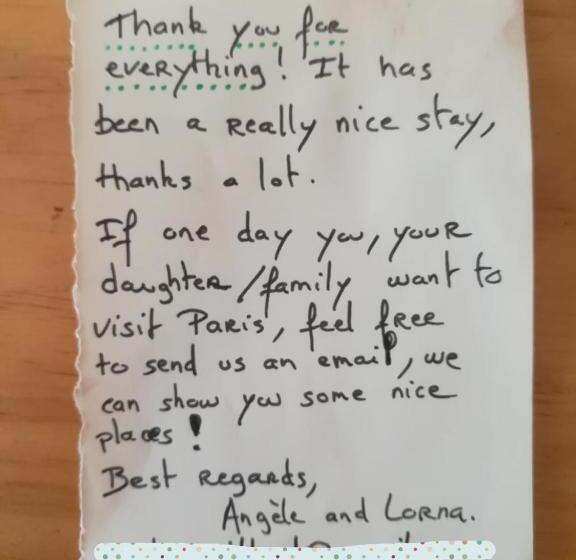 Thank you for
everything! It has
been a really nice stay,
thanks a lot.
If one day you, your
daughter/family want to
visit Paris, feel free
to send us an email, we
can show you some nice
places!
Best regards,
Angèle and Lorna.